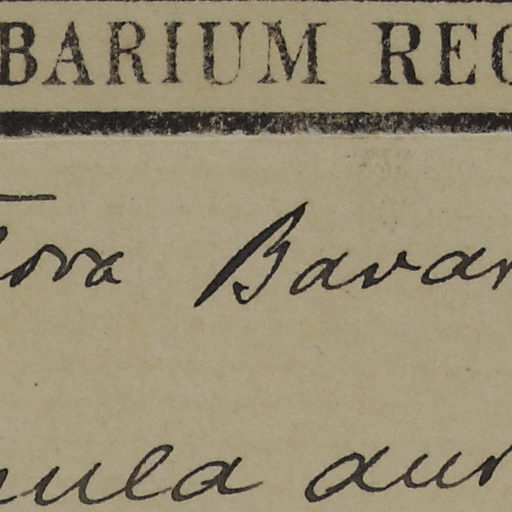 BARIUM REG
lora Bavar
nula aur